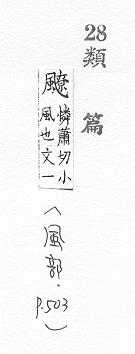 28
類篇
飉憐蕭切小
風也文一
(風部.P.503)